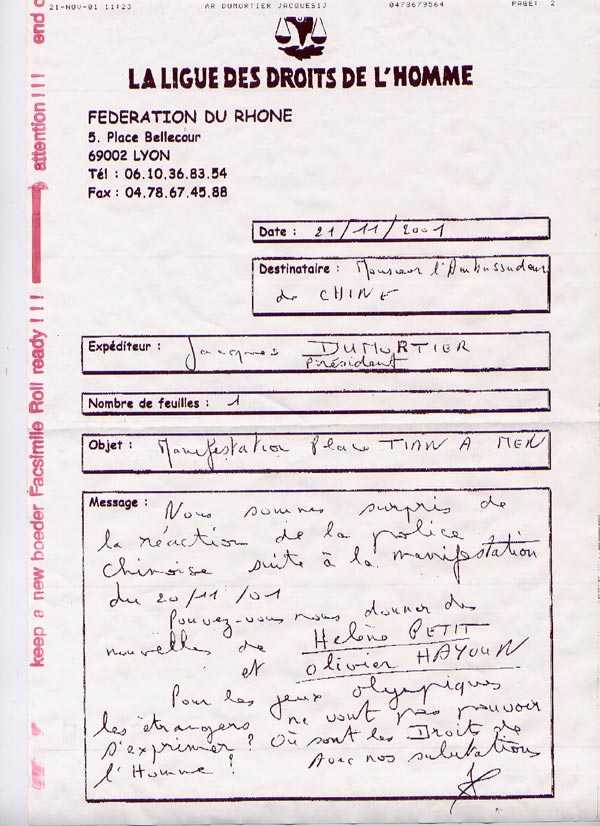 21-NOV-01 11:23 AR DUMORTIER JACQUES1J 0478679564 PAGE: 2
LA LIGUE DES DROITS DE L'HOMME
FEDERATION DU RHONE
5. Place Bellecour
69002 LYON
Tél : 06.10.36.83.54
Fax : 04.78.67.45.88
Date : 21/11/2001
Destinataire : Monsieur l'Ambassadeur
de CHINE
Expéditeur : Jacques DUMORTIER
Président
Nombre de feuilles : 1
Objet : Manifestation Place TIAN A MEN
Message : Nous sommes surpris de
la réaction de la police
chinoise suite à la manifestation
du 20/11/01
Pouvez-vous nous donner des
nouvelles de Helène PETIT
et Olivier HAYOUN
Pour les jeux olympiques
les étrangers ne vont pas pouvoir
s'exprimer ? Où sont les Droit de
l'Homme ? Avec nos salutations
keep a new boeder Facsimile Roll ready !!! attention !!! end o